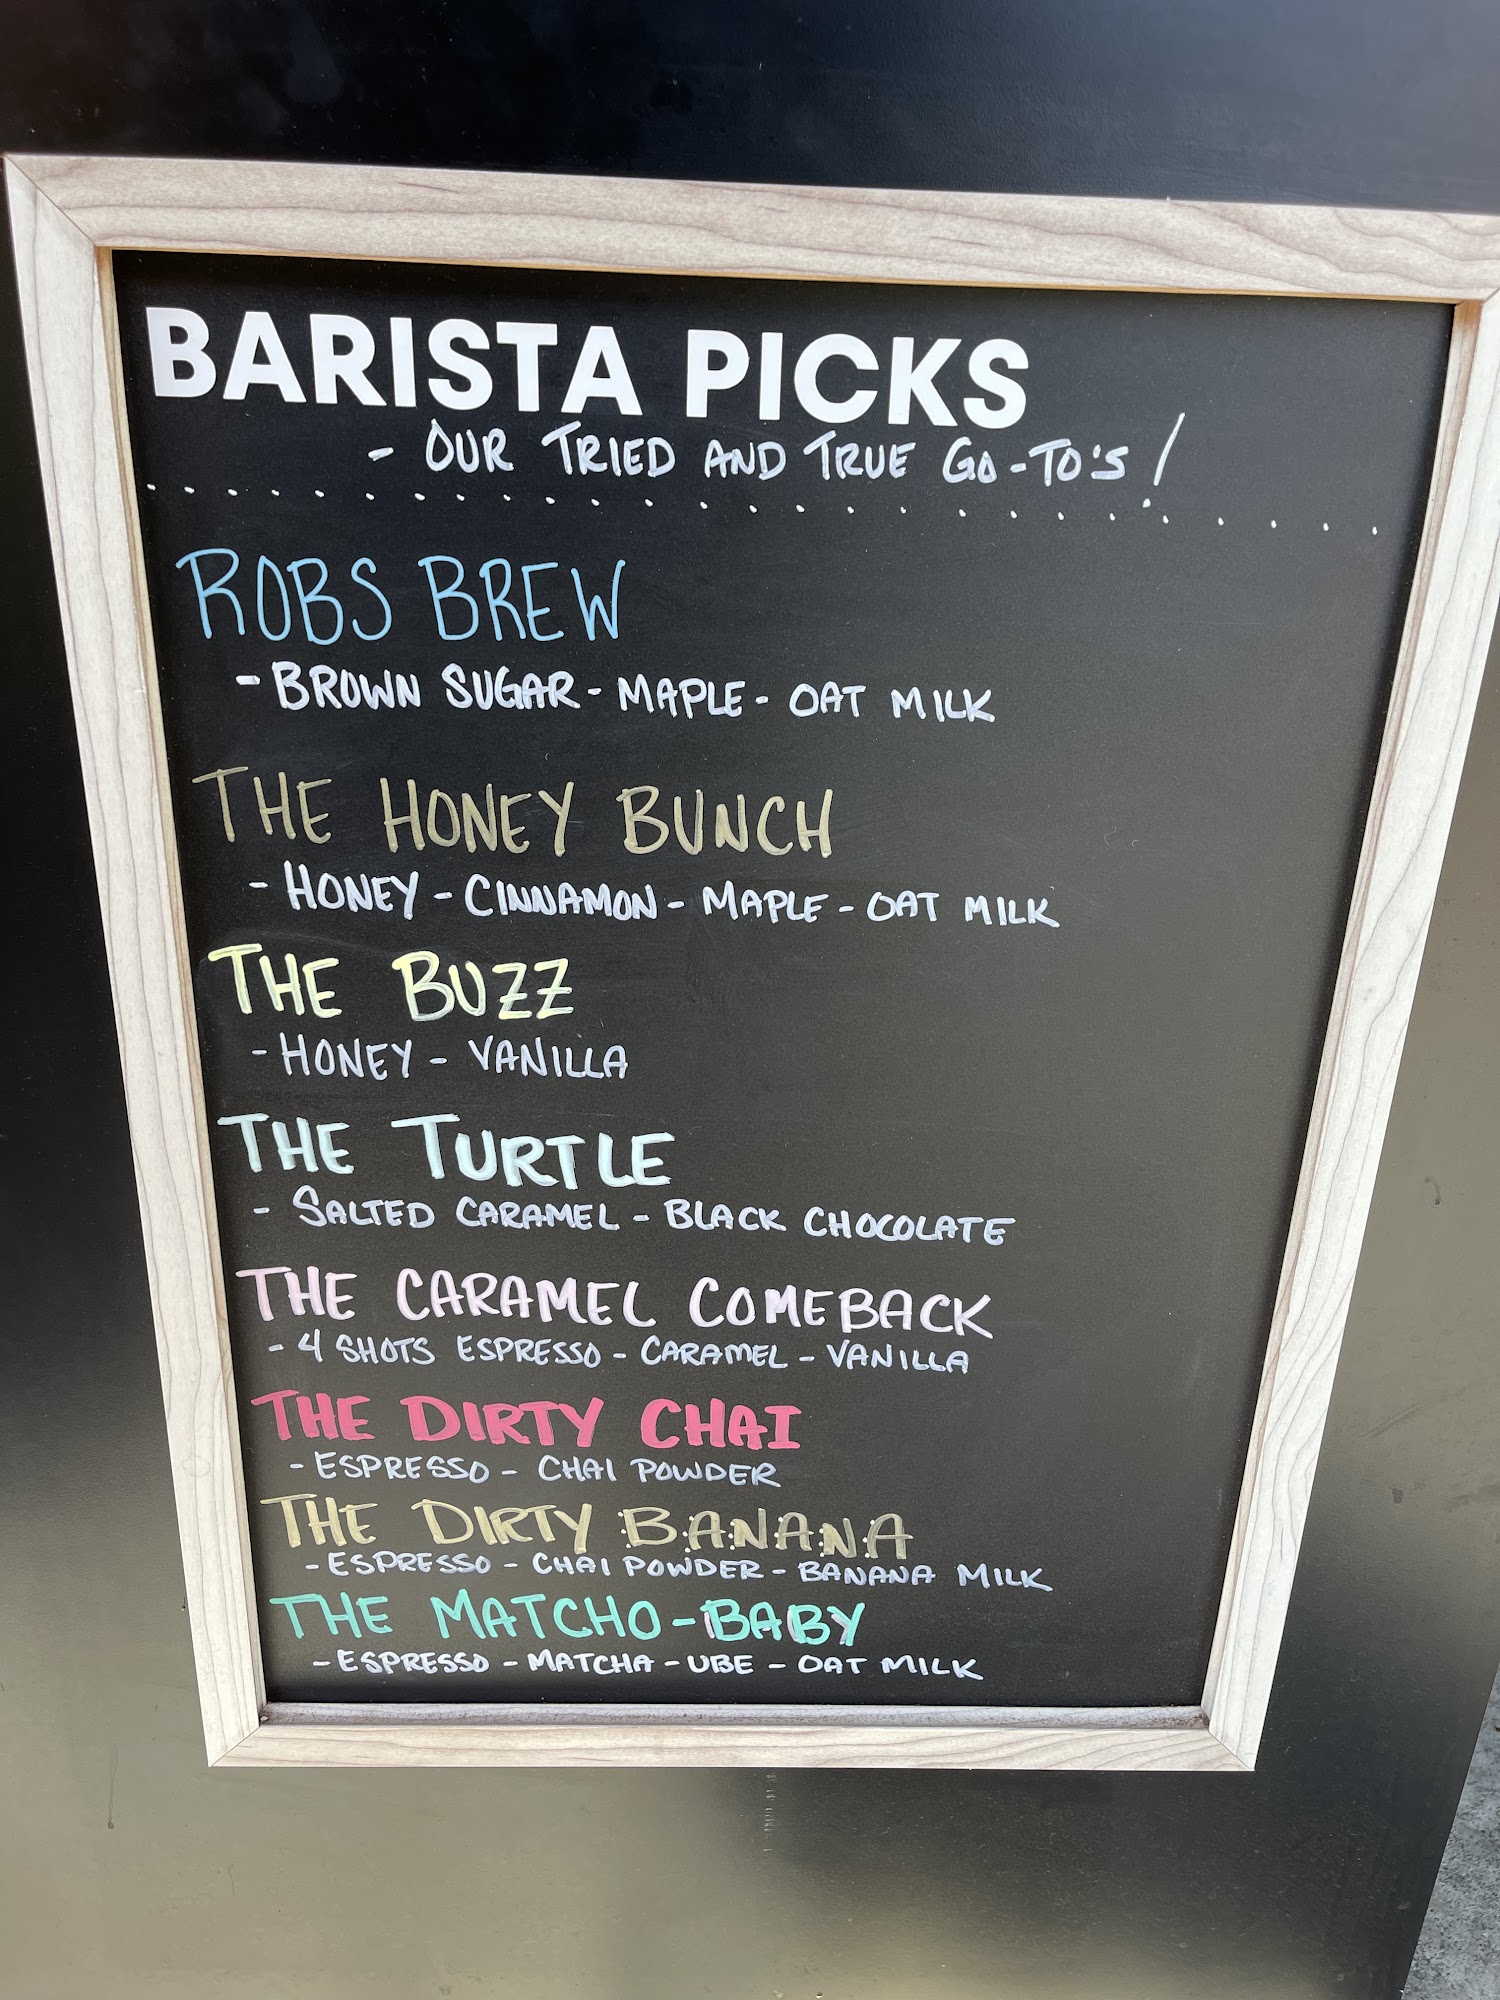 BARISTA PICKS
- OUR TRIED AND TRUE GO-TO'S!
ROBS BREW
- BROWN SUGAR - MAPLE - OAT MILK
THE HONEY BUNCH
- HONEY - CINNAMON - MAPLE - OAT MILK
THE BUZZ
- HONEY - VANILLA
THE TURTLE
- SALTED CARAMEL - BLACK CHOCOLATE
THE CARAMEL COMEBACK
- 4 SHOTS ESPRESSO - CARAMEL - VANILLA
THE DIRTY CHAI
- ESPRESSO - CHAI POWDER
THE DIRTY BANANA
- ESPRESSO - CHAI POWDER - BANANA MILK
THE MATCHO-BABY
- ESPRESSO - MATCHA - UBE - OAT MILK